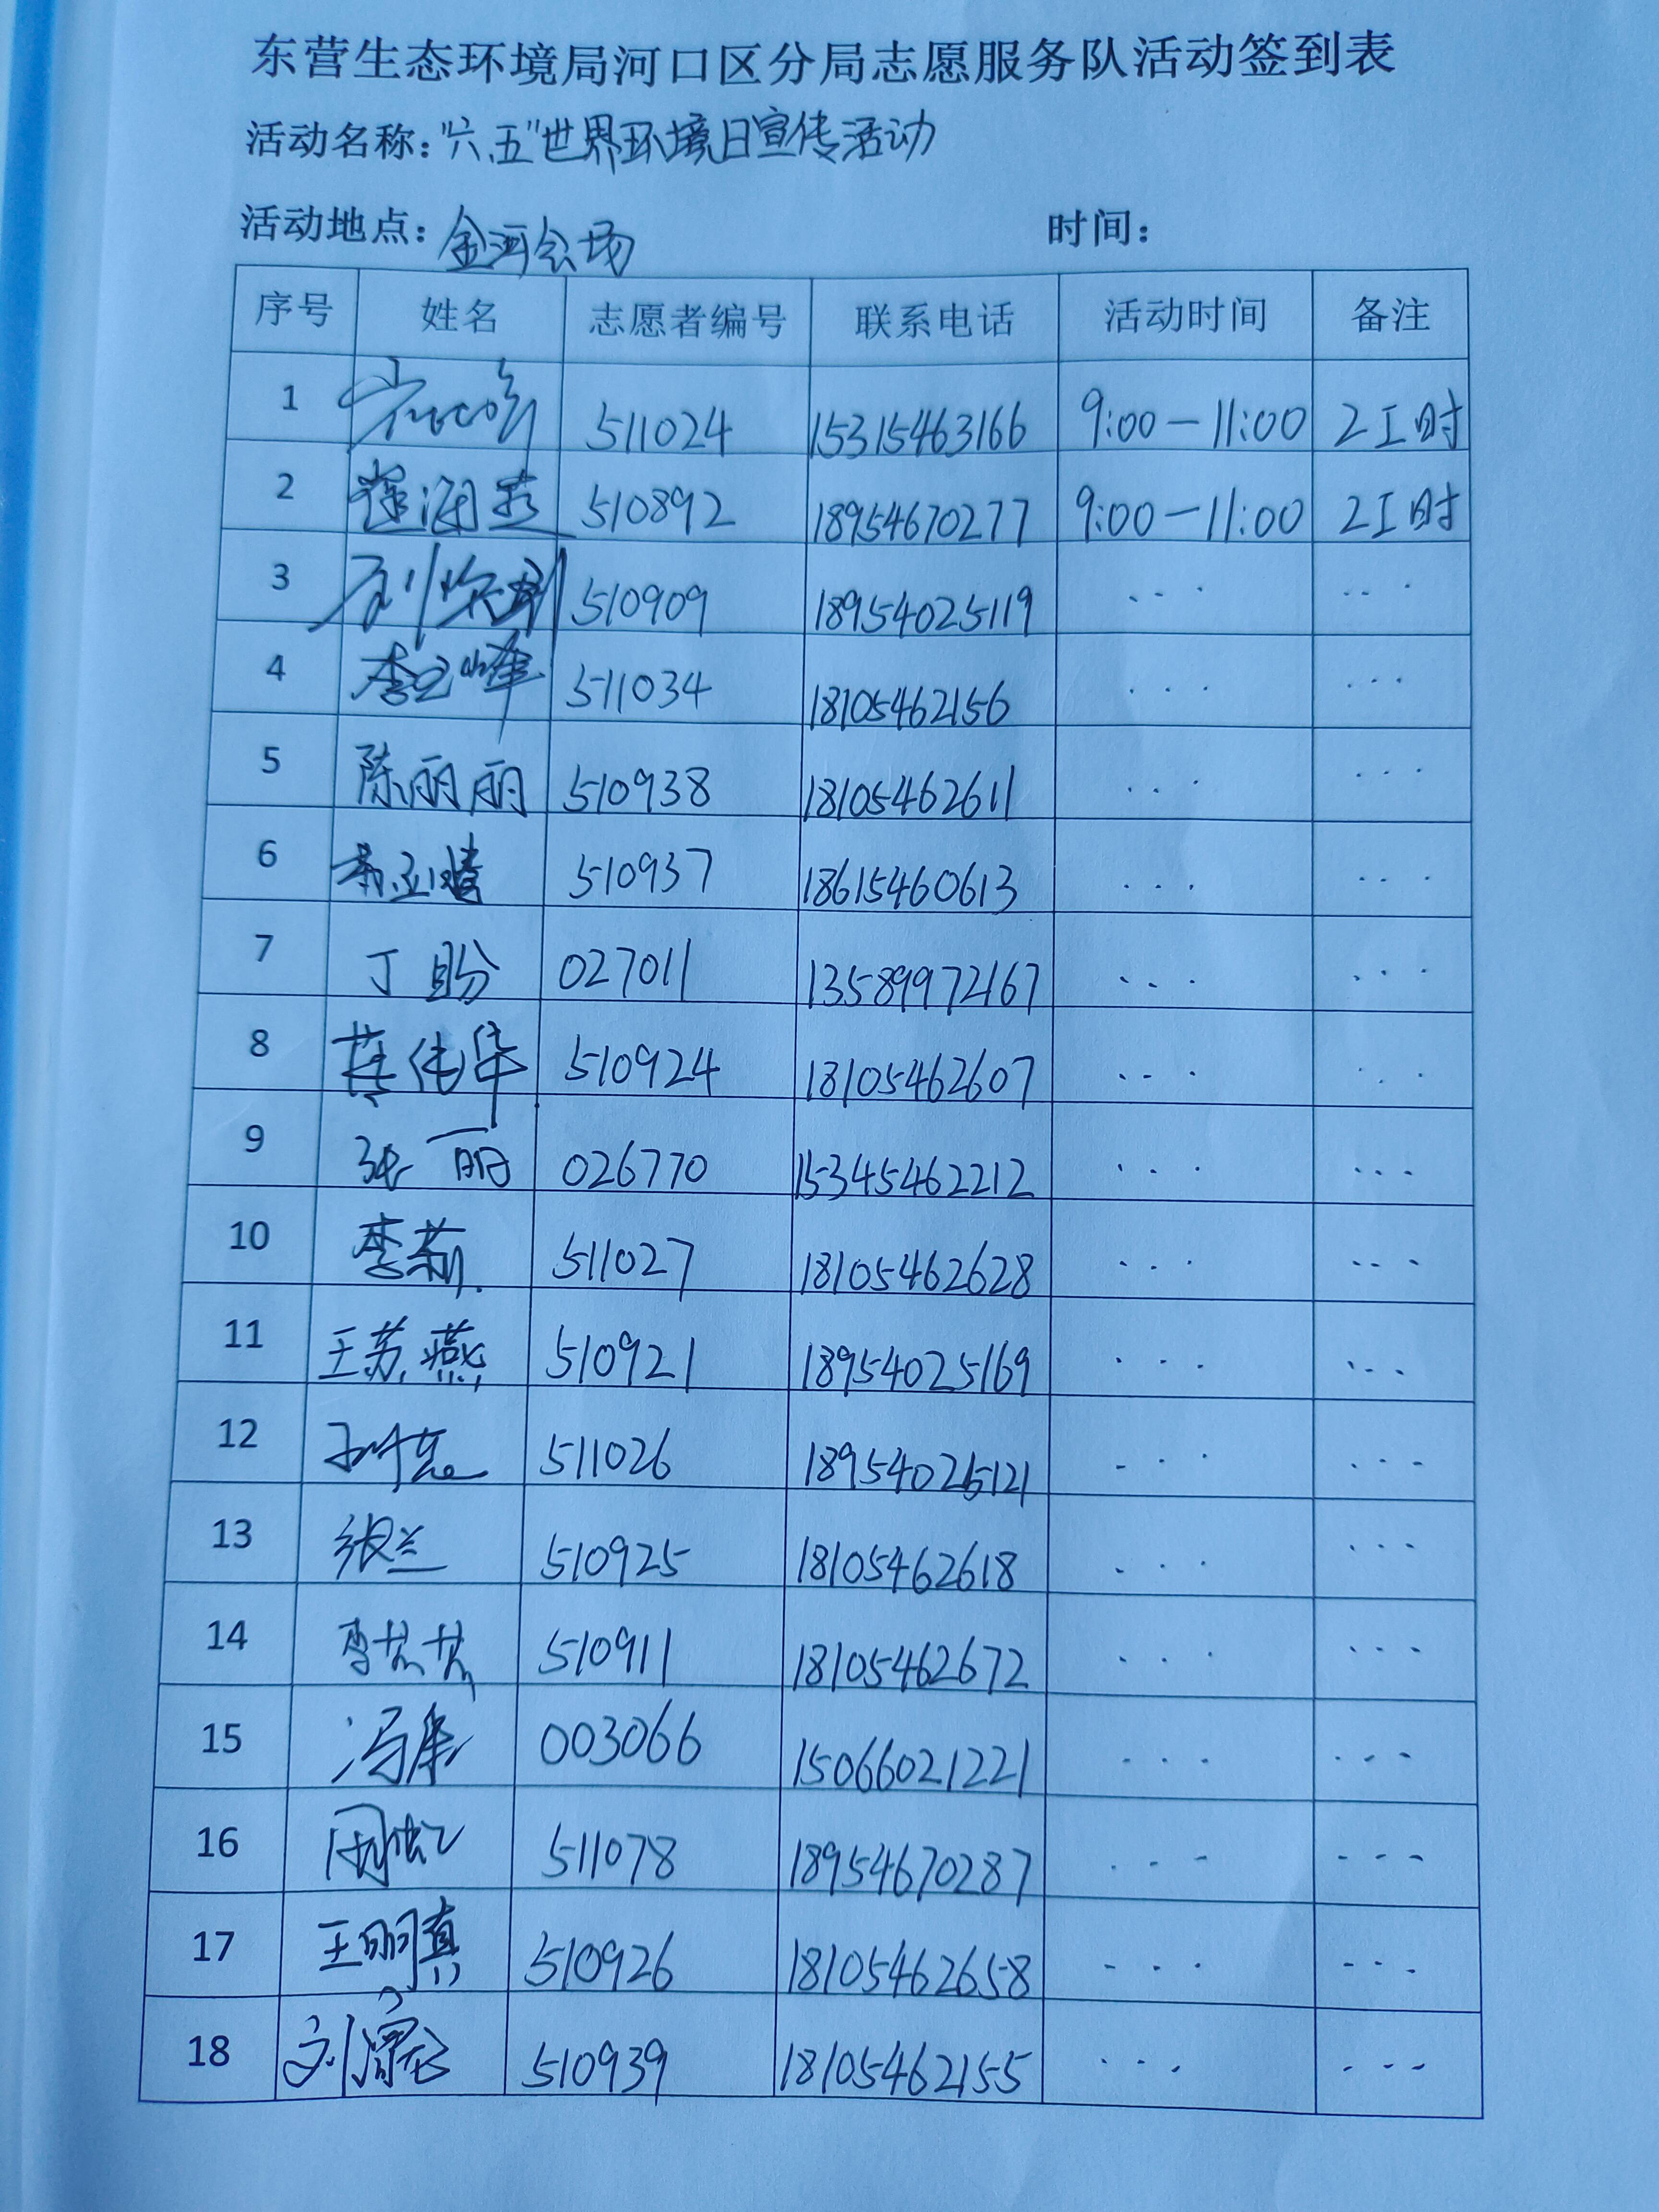 东营生态环境局河口区分局志愿服务队活动签到表
活动名称:"六.五"世界环境日宣传活动
活动地点:金河会场 时间:
序号 姓名 志愿者编号 联系电话 活动时间 备注
1 511024 15315463166 9:00-11:00 2工时
2 510892 18954670277 9:00-11:00 2工时
3 510909 18954025119 ... ...
4 511034 18105462156 ... ...
5 陈丽丽 510938 18105462611 ... ...
6 510937 18615460613 ... ...
7 丁盼 027011 13589972167 ... ...
8 蒋伟华 510924 18105462607 ... ...
9 张丽 026770 15345462212 ... ...
10 李莉 511027 18105462628 ... ...
11 王苏燕 510921 18954025169 ... ...
12 511026 18954025121 ... ...
13 张兰 510925 18105462618 ... ...
14 510911 18105462672 ... ...
15 003066 15066021221 ... ...
16 周虹 511078 18954670287 ... ...
17 王丽真 510926 18105462658 ... ...
18 510939 18105462155 ... ...